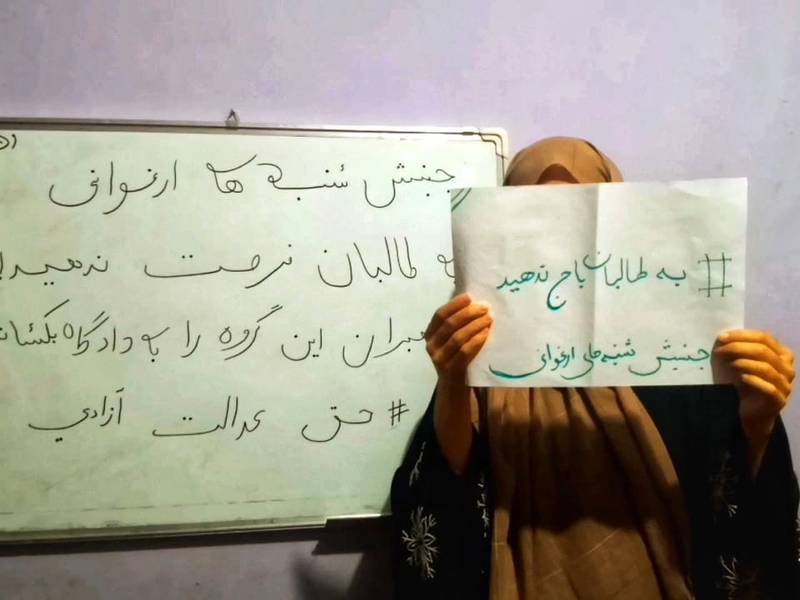 جنبش شنبه ها ارغوانی
طالبان فرصت ندهید
این گروه را به دادگاه
# حق عدالت آزادی
# به طالبان باج ندهید
جنبش شنبه های ارغوانی